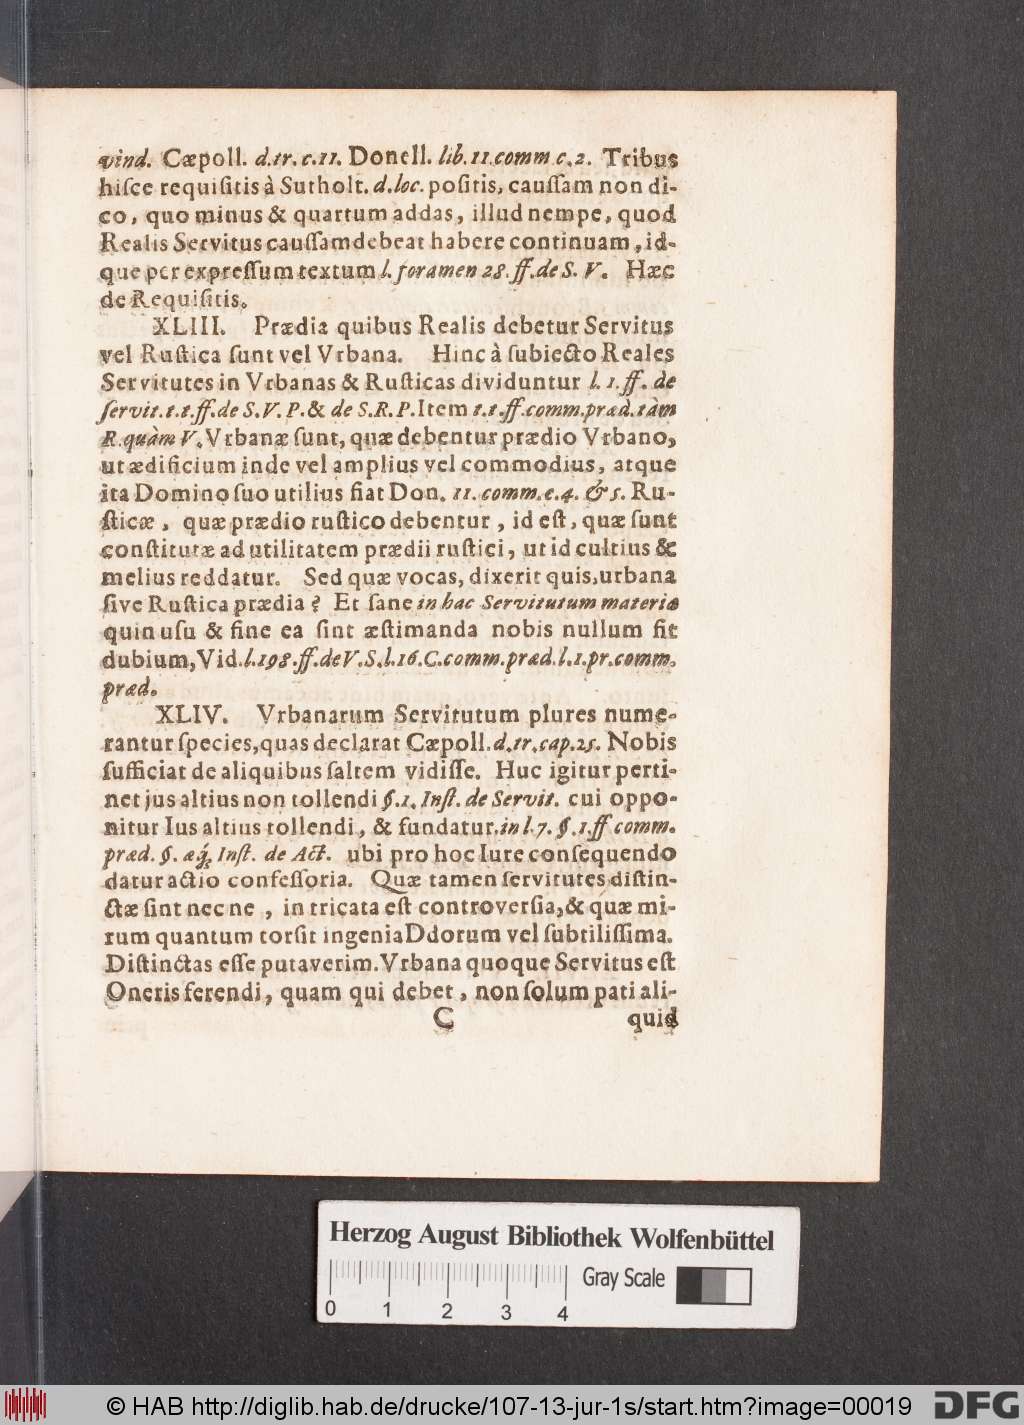 vind. Cæpoll. d.tr. c.11. Donell. lib. 11. comm c. 2. Tribus
hiſce requiſitis à Sutholt. d. loc. poſitis, cauſſam non di-
co, quo minus & quartum addas, illud nempe, quod
Realis Servitus cauſſam debeat habere continuam, id-
que per expreſſum textum l. foramen 28. ff. de S. V. Hæc
de Requiſitis.
XLIII. Prædia quibus Realis debetur Servitus
vel Ruſtica ſunt vel Vrbana. Hinc à ſubiecto Reales
Servitutes in Vrbanas & Ruſticas dividuntur l. 1. ff. de
ſervit. t. t. ff. de S. V. P. & de S. R. P. Item t. t. ff. comm. præd. tàm
R. quàm V. Vrbanæ ſunt, quæ debentur prædio Vrbano,
ut ædificium inde vel amplius vel commodius, atque
ita Domino ſuo utilius fiat Don. 11. comm. c. 4. & 5. Ru-
ſticæ, quæ prædio ruſtico debentur, id eſt, quæ ſunt
conſtitutæ ad utilitatem prædii ruſtici, ut id cultius &
melius reddatur. Sed quæ vocas, dixerit quis, urbana
ſive Ruſtica prædia? Et ſane in hac Servitutum materia
quin uſu & fine ea ſint æſtimanda nobis nullum fit
dubium, Vid. l. 198. ff. de V. S. l. 16. C. comm. præd. l. 1. pr. comm.
præd.
XLIV. Vrbanarum Servitutum plures nume-
rantur ſpecies, quas declarat Cæpoll. d. tr. cap. 25. Nobis
ſufficiat de aliquibus ſaltem vidiſſe. Huc igitur perti-
net jus altius non tollendi §. 1. Inſt. de Servit. cui oppo-
nitur Ius altius tollendi, & fundatur. in l. 7. §. 1. ff comm.
præd. §. æq́; Inſt. de Act. ubi pro hoc Iure conſequendo
datur actio confeſſoria. Quæ tamen ſervitutes diſtin-
ctæ ſint nec ne, in tricata eſt controverſia, & quæ mi-
rum quantum torſit ingenia Ddorum vel ſubtiliſſima.
Diſtinctas eſſe putaverim. Vrbana quoque Servitus eſt
Oneris ferendi, quam qui debet, non ſolum pati ali-
C quid
Herzog August Bibliothek Wolfenbüttel
Gray Scale
0 1 2 3 4
© HAB http://diglib.hab.de/drucke/107-13-jur-1s/start.htm?image=00019
DFG